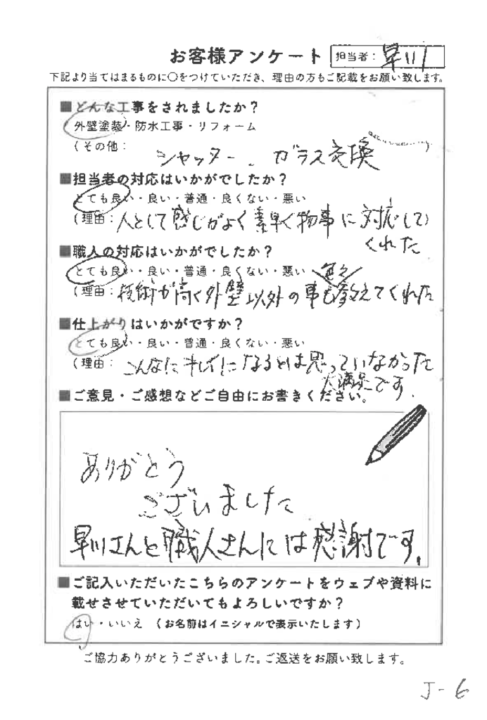 お客様アンケート 担当者: 早川
下記より当てはまるものに〇をつけていただき、理由の方もご記載をお願い致します。
■どんな工事をされましたか?
外壁塗装・防水工事・リフォーム
(その他: シャッター、ガラス交換)
■担当者の対応はいかがでしたか?
とても良い・良い・普通・良くない・悪い
(理由: 人として感じがよく素早く物事に対応して
くれた
■職人の対応はいかがでしたか?
とても良い・良い・普通・良くない・悪い
(理由: 技術が高く外壁以外の事も教えてくれた
■仕上がりはいかがですか?
とても良い・良い・普通・良くない・悪い
(理由: こんなにキレイになるとは思っていなかった
大満足です.
■ご意見・ご感想などご自由にお書きください。
ありがとう
ございました
早川さんと職人さんには感謝です。
■ご記入いただいたこちらのアンケートをウェブや資料に
載せさせていただいてもよろしいですか?
はい・いいえ (お名前はイニシャルで表示いたします)
ご協力ありがとうございました。ご返送をお願い致します。
J-6